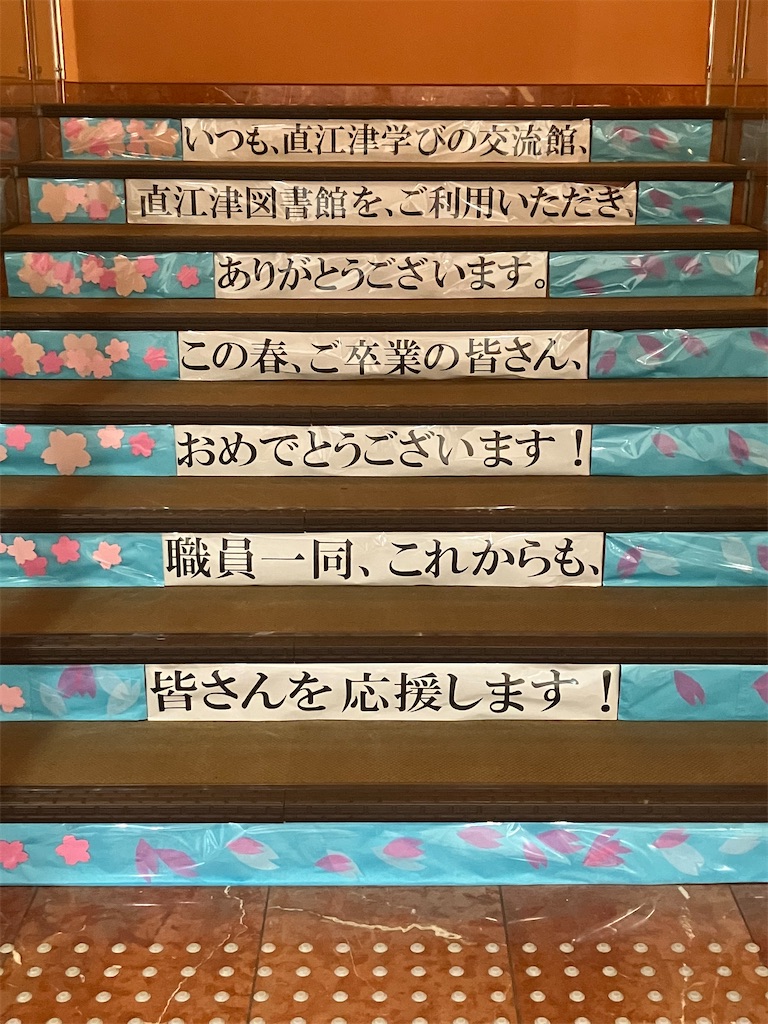 いつも、直江津学びの交流館、
直江津図書館を、ご利用いただき、
ありがとうございます。
この春、ご卒業の皆さん、
おめでとうございます！
職員一同、これからも、
皆さんを応援します！